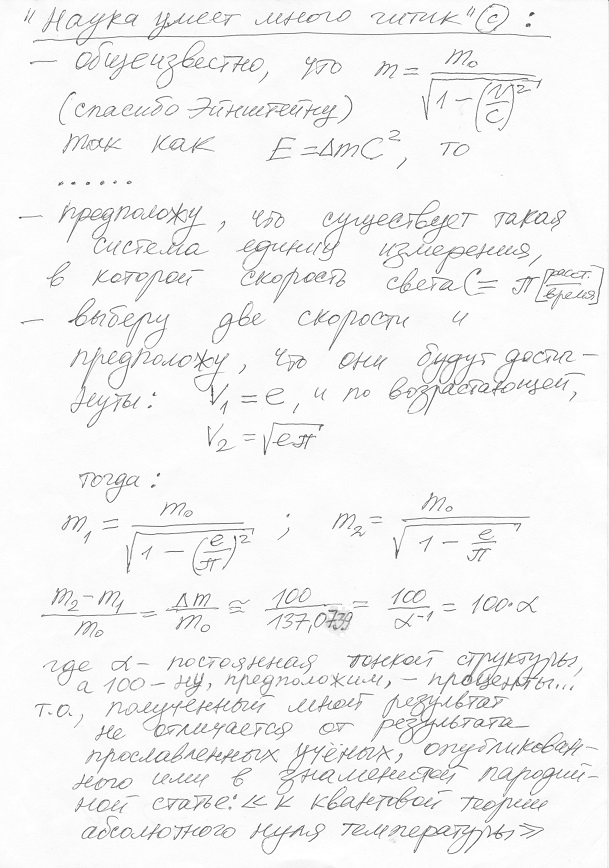 "Наука умеет много гитик" (с) :
— общеизвестно, что m = m₀ / √(1 − (v/c)²)
(спасибо Эйнштейну)
так как E = Δmc², то
......
— предположу, что существует такая
система единиц измерения,
в которой скорость света C = π [расст./время]
— выберу две скорости и
предположу, что они будут достиг-
нуты: V₁ = e, и по возрастающей,
V₂ = √(eπ)
тогда:
m₁ = m₀ / √(1 − (e/π)²) ; m₂ = m₀ / √(1 − e/π)
(m₂ − m₁)/m₀ = Δm/m₀ ≅ 100/137,0739 = 100/α⁻¹ = 100·α
где α - постоянная тонкой структуры,
а 100 - ну, предположим, - проценты...
т.о., полученный мной результат
не отличается от результата
прославленных учёных, опубликован-
ного ими в знаменитой пародий-
ной статье: «К квантовой теории
абсолютного нуля температуры»